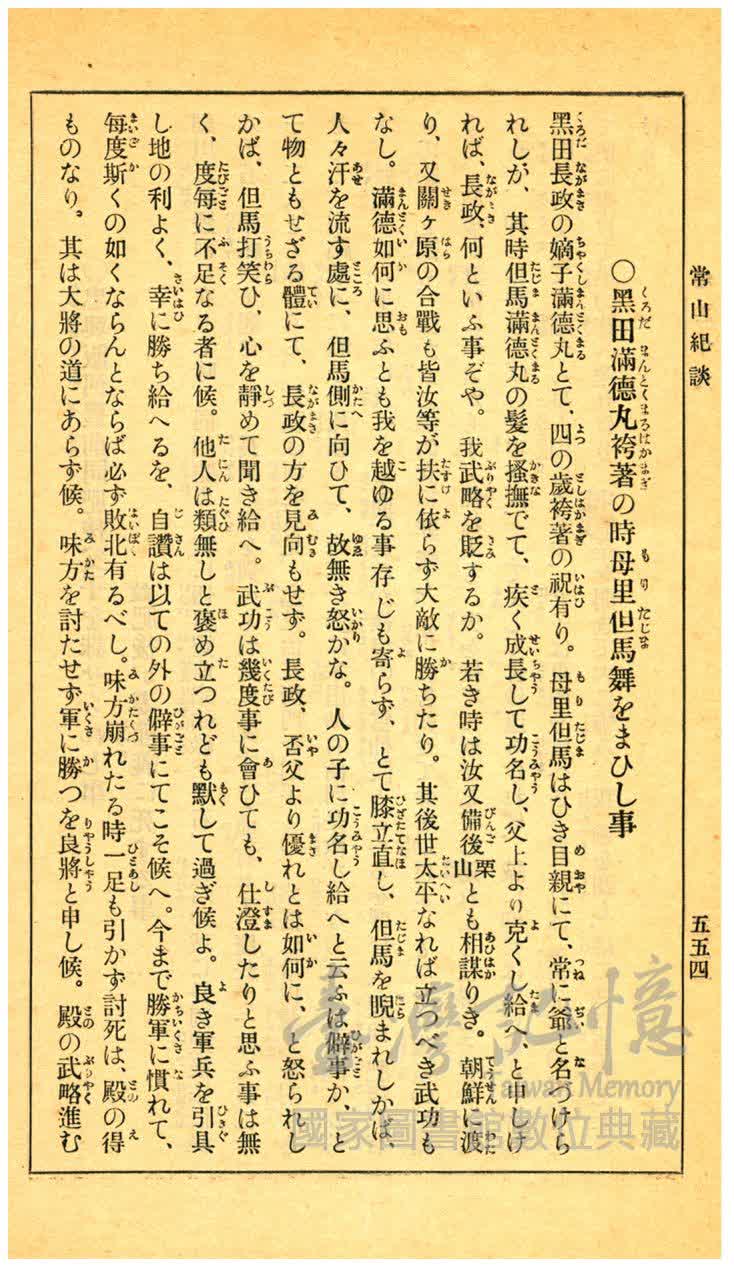 常山紀談
五五四
〇黑田滿德丸袴著の時母里但馬舞をまひし事
黑田長政の嫡子滿德丸とて、四の歲袴著の祝有り。母里但馬はひき目親にて、常に爺と名づけら
れしが、其時但馬滿德丸の髮を搔撫でて、疾く成長して功名し、父上より克くし給へ、と申しけ
れば、長政、何といふ事ぞや。我武略を貶するか。若き時は汝又備後栗山とも相謀りき。朝鮮に渡
り、又關ヶ原の合戰も皆汝等が扶に依らず大敵に勝ちたり。其後世太平なれば立つべき武功も
なし。滿德如何に思ふとも我を越ゆる事存じも寄らず、とて膝立直し、但馬を睨まれしかば、
人々汗を流す處に、但馬側に向ひて、故無き怒かな。人の子に功名し給へと云ふは僻事か、と
て物ともせざる體にて、長政の方を見向もせず。長政、否父より優れとは如何に、と怒られし
かば、但馬打笑ひ、心を靜めて聞き給へ。武功は幾度事に會ひても、仕澄したりと思ふ事は無
く、度每に不足なる者に候。他人は類無しと褒め立つれども默して過ぎ候よ。良き軍兵を引具
し地の利よく、幸に勝ち給へるを、自讚は以ての外の僻事にてこそ候へ。今まで勝軍に慣れて、
每度斯くの如くならんとならば必ず敗北有るべし。味方崩れたる時一足も引かず討死は、殿の得
ものなり。其は大將の道にあらず候。味方を討たせず軍に勝つを良將と申し候。殿の武略進む
臺灣記憶
Taiwan Memory
國家圖書館數位典藏